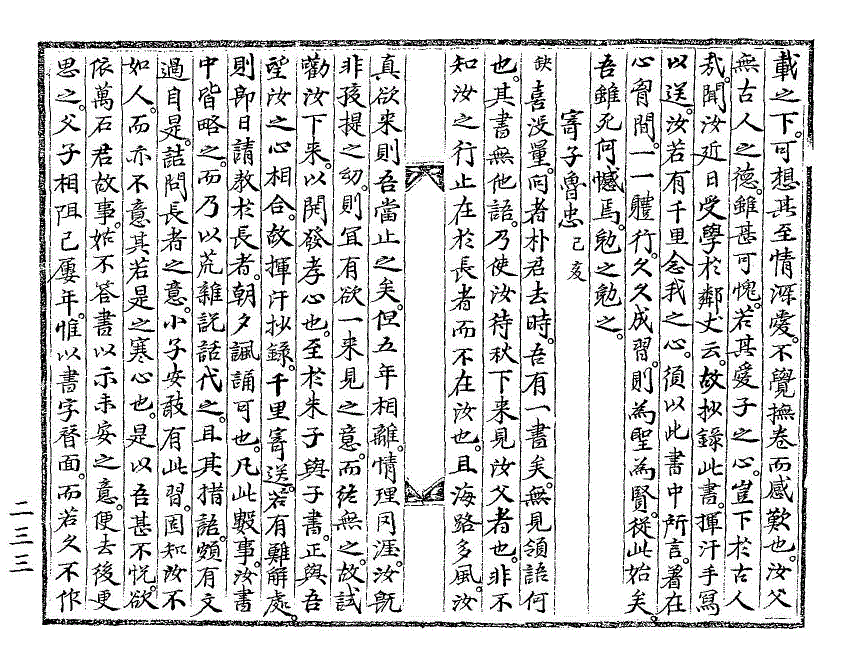 載之下。可想其至情深愛。不覺撫卷而感歎也。汝父
無古人之德。雖甚可愧。若其愛子之心。豈下於古人
哉。聞汝近日受學於鄰丈云。故抄錄此書。揮汗手寫
以送。汝若有千里念我之心。須以此書中所言。著在
心胷間。一一體行。久久成習。則為聖為賢。從此始矣。
吾雖死何憾焉。勉之勉之。
寄子魯忠 己亥
缺喜没量。向者朴君去時。吾有一書矣。無見領語何
也。其書無他語。乃使汝待秋下來見汝父者也。非不
知汝之行止在於長者而不在汝也。且海路多風。汝
真欲來則吾當止之矣。但五年相離。情理罔涯。汝旣
非孩提之幼。則冝有欲一來見之意。而絶無之。故試
勸汝下來。以開發孝心也。至於朱子與子書。正與吾
望汝之心相合。故揮汗抄錄。千里寄送。若有難解處。
則卽日請教於長者。朝夕諷誦可也。凡此數事。汝書
中皆略之。而乃以荒雜說話代之。且其措語。頗有文
過自是。詰問長者之意。小子安敢有此習。固知汝不
如人。而亦不意其若是之寒心也。是以吾甚不悅。欲
依萬石君故事。姑不答書以示未安之意。便去後更
思之。父子相阻已屢年。惟以書字替面。而若久不作
二三三